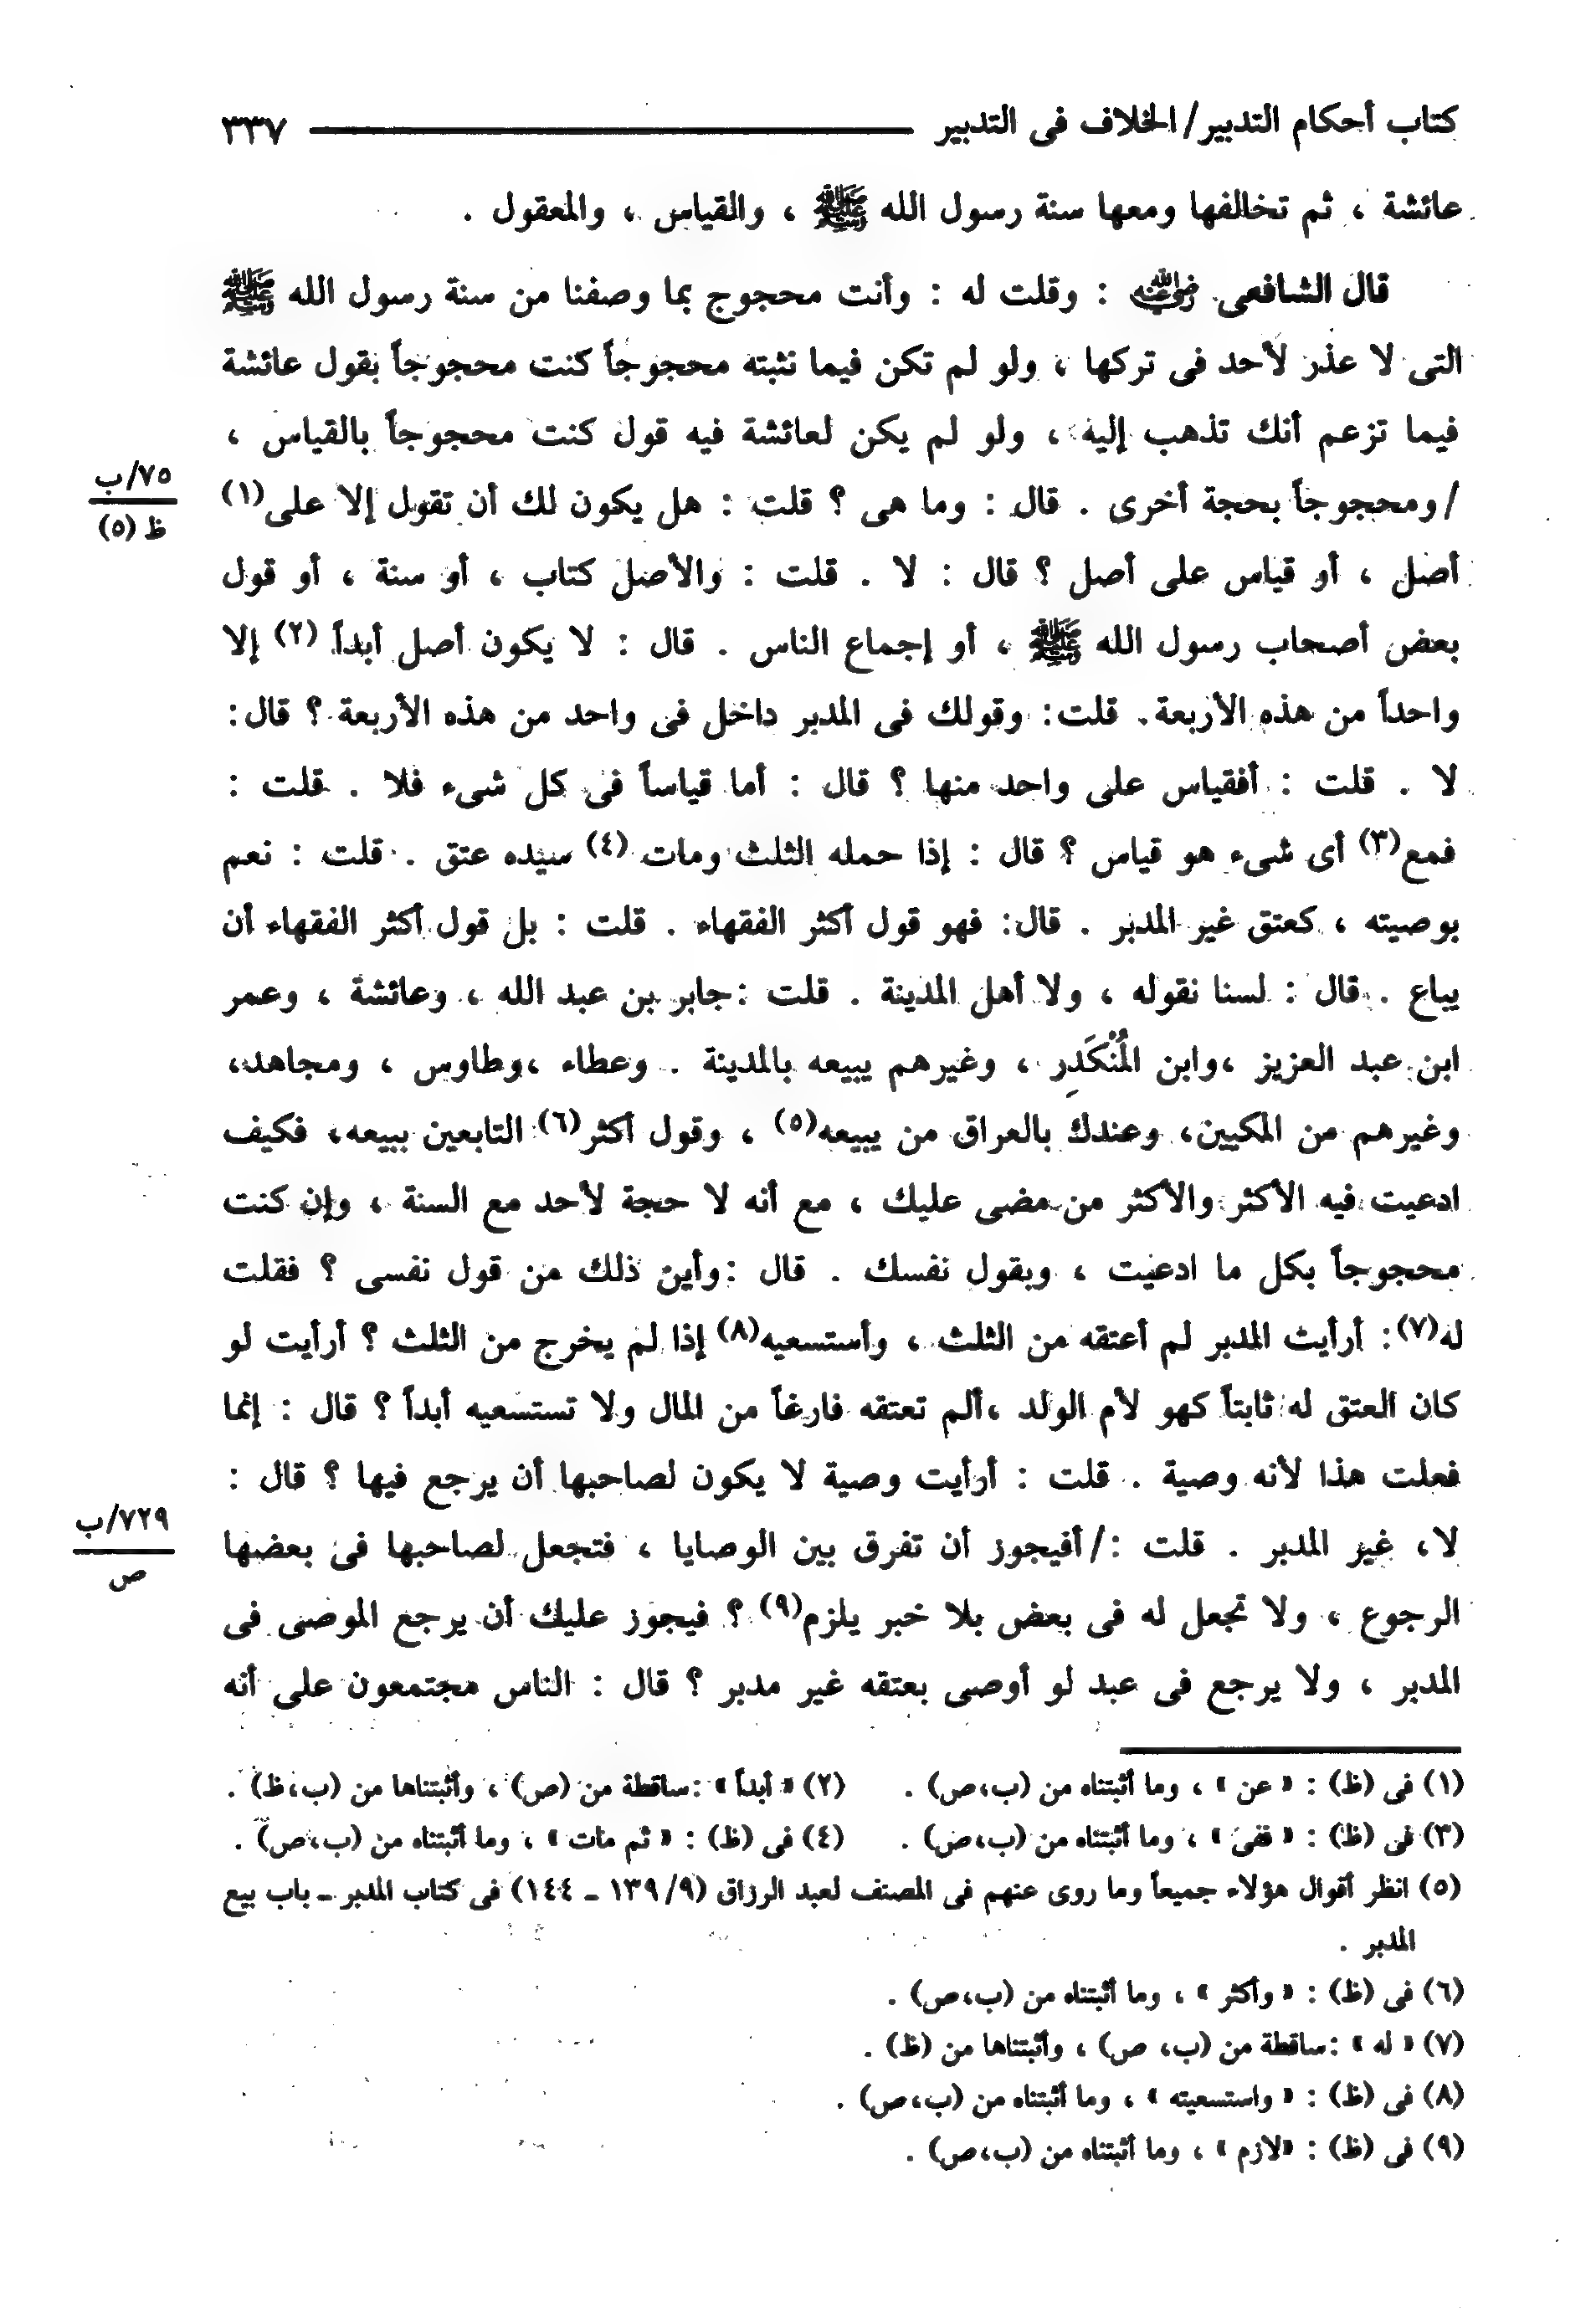 كتاب أحكام التدبير/ الخلاف فى التدبير ٣٣٧
عائشة ، ثم تخالفها ومعها سنة رسول الله ﷺ ، والقياس ، والمعقول .
قال الشافعى رضي الله عنه : وقلت له : وأنت محجوج بما وصفنا من سنة رسول الله ﷺ
التى لا عذر لأحد فى تركها ، ولو لم تكن فيما نثبته محجوجاً كنت محجوجاً بقول عائشة
فيما تزعم أنك تذهب إليه ، ولو لم يكن لعائشة فيه قول كنت محجوجاً بالقياس ،
٧٥/ب
ظ (٥)
/ ومحجوجاً بحجة أخرى . قال : وما هى ؟ قلت : هل يكون لك أن تقول إلا على(١)
أصل ، أو قياس على أصل ؟ قال : لا . قلت : والأصل كتاب ، أو سنة ، أو قول
بعض أصحاب رسول الله ﷺ ، أو إجماع الناس . قال : لا يكون أصل أبداً (٢) إلا
واحداً من هذه الأربعة . قلت : وقولك فى المدبر داخل فى واحد من هذه الأربعة ؟ قال :
لا . قلت : أفقياس على واحد منها ؟ قال : أما قياساً فى كل شىء فلا . قلت :
فمع(٣) أى شىء هو قياس ؟ قال : إذا حمله الثلث ومات (٤) سيده عتق . قلت : نعم
بوصيته ، كعتق غير المدبر . قال: فهو قول أكثر الفقهاء . قلت : بل قول أكثر الفقهاء أن
يباع . قال : لسنا نقوله ، ولا أهل المدينة . قلت : جابر بن عبد الله ، وعائشة ، وعمر
ابن عبد العزيز ،وابن المُنْكَدِر ، وغيرهم يبيعه بالمدينة . وعطاء ،وطاوس ، ومجاهد،
وغيرهم من المكيين، وعندك بالعراق من يبيعه(٥) ، وقول أكثر(٦) التابعين ببيعه، فكيف
ادعيت فيه الأكثر والأكثر من مضى عليك ، مع أنه لا حجة لأحد مع السنة ، وإن كنت
محجوجاً بكل ما ادعيت ، وبقول نفسك . قال :وأين ذلك من قول نفسى ؟ فقلت
له(٧): أرأيت المدبر لم أعتقه من الثلث ، وأستسعيه(٨) إذا لم يخرج من الثلث ؟ أرأيت لو
كان العتق له ثابتاً كهو لأم الولد ،ألم تعتقه فارغاً من المال ولا تستسعيه أبداً ؟ قال : إنما
فعلت هذا لأنه وصية . قلت : أرأيت وصية لا يكون لصاحبها أن يرجع فيها ؟ قال :
٧٢٩/ب
ص
لا، غير المدبر . قلت :/ أفيجوز أن تفرق بين الوصايا ، فتجعل لصاحبها فى بعضها
الرجوع ، ولا تجعل له فى بعض بلا خبر يلزم(٩) ؟ فيجوز عليك أن يرجع الموصى فى
المدبر ، ولا يرجع فى عبد لو أوصى بعتقه غير مدبر ؟ قال : الناس مجتمعون على أنه
(١) فى (ظ) : « عن » ، وما أثبتناه من (ب،ص) . (٢) « أبداً » :ساقطة من (ص) ، وأثبتناها من (ب،ظ) .
(٣) فى (ظ) : « ففى » ، وما أثبتناه من (ب،ص) . (٤) فى (ظ) : « ثم مات » ، وما أثبتناه من (ب،ص) .
(٥) انظر أقوال هؤلاء جميعاً وما روى عنهم فى المصنف لعبد الرزاق (٩/ ١٣٩ ـ ١٤٤) فى كتاب المدبر ـ باب بيع
المدبر .
(٦) فى (ظ) : « وأكثر » ، وما أثبتناه من (ب،ص) .
(٧) « له » :ساقطة من (ب، ص) ، وأثبتناها من (ظ) .
(٨) فى (ظ) : « واستسعيته » ، وما أثبتناه من (ب،ص) .
(٩) فى (ظ) : «لازم » ، وما أثبتناه من (ب،ص) .